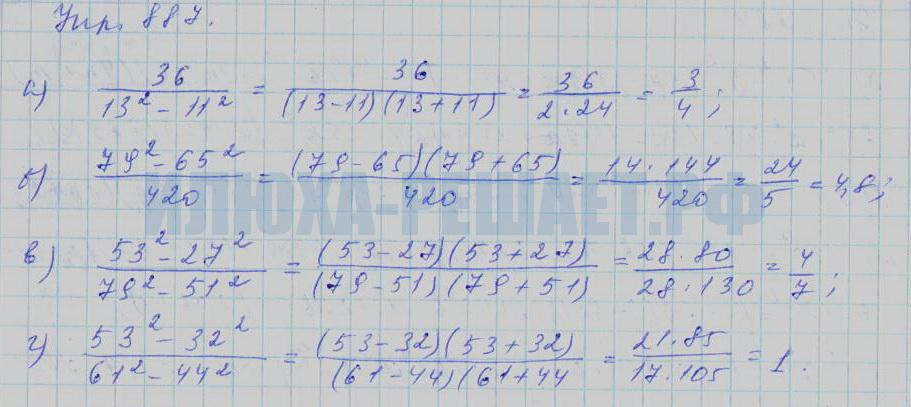 Упр. 887.
а) 36 / (13² - 11²) = 36 / ((13-11)(13+11)) = 36 / (2·24) = 3/4;
б) (79² - 65²) / 420 = (79-65)(79+65) / 420 = 14·144 / 420 = 24/5 = 4,8;
ИЛЮХА-РЕШАЕТ.РФ
в) (53² - 27²) / (79² - 51²) = (53-27)(53+27) / ((79-51)(79+51)) = 28·80 / (28·130) = 4/7;
г) (53² - 32²) / (61² - 44²) = (53-32)(53+32) / ((61-44)(61+44) = 21·85 / (17·105) = 1.